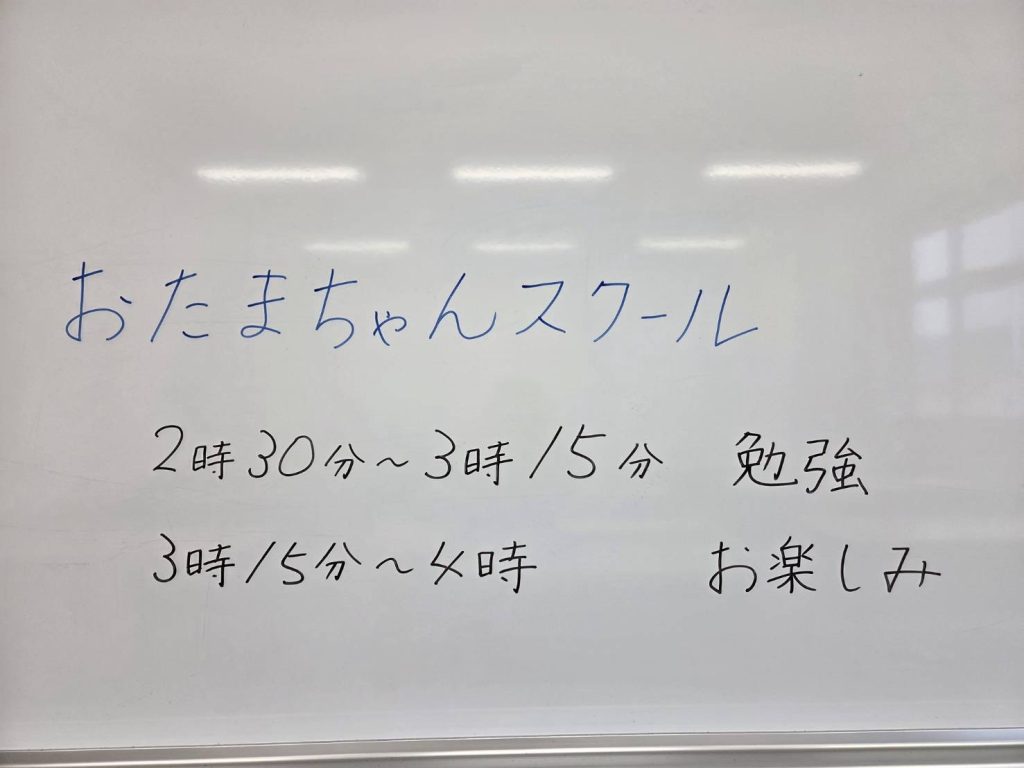 おたまちゃんスクール
2時30分～3時15分 勉強
3時15分～4時 お楽しみ